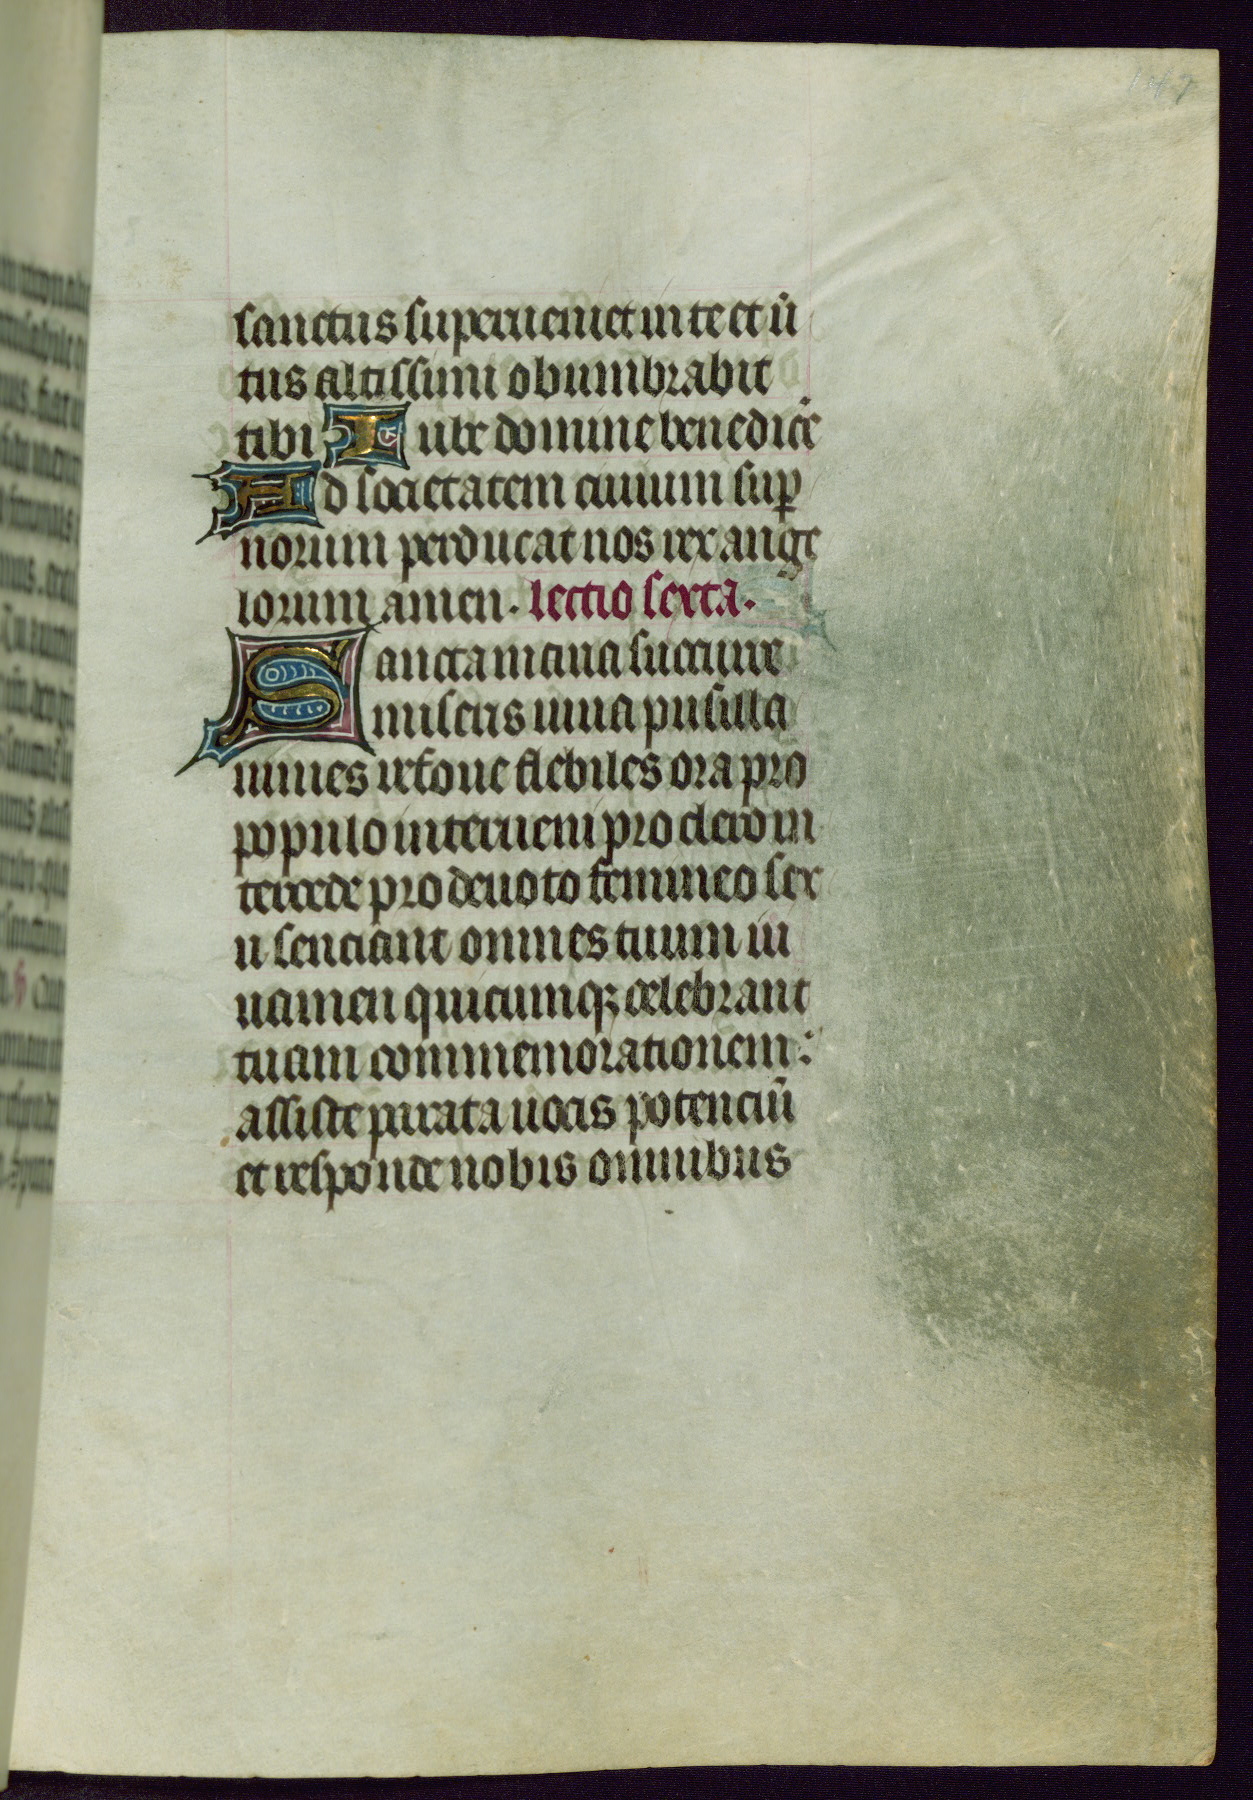 sanctus superueniet in te et ũ
tus altissimi obumbrabit
tibi Iube domine benedicẽ
Ad societatem ciuium suꝑ
norum perducat nos rex ange
lorum amen. lectio sexta.
Sancta maria succurre
miseris iuua pusilla
nimes refoue flebiles ora pro
populo interueni pro clero in
tercede pro deuoto femineo sex
u senciant omnes tuum iu
uamen quicumqꝫ celebrant
tuam commemorationem:
assiste parata uocis potenciũ
et responde nobis omnibus